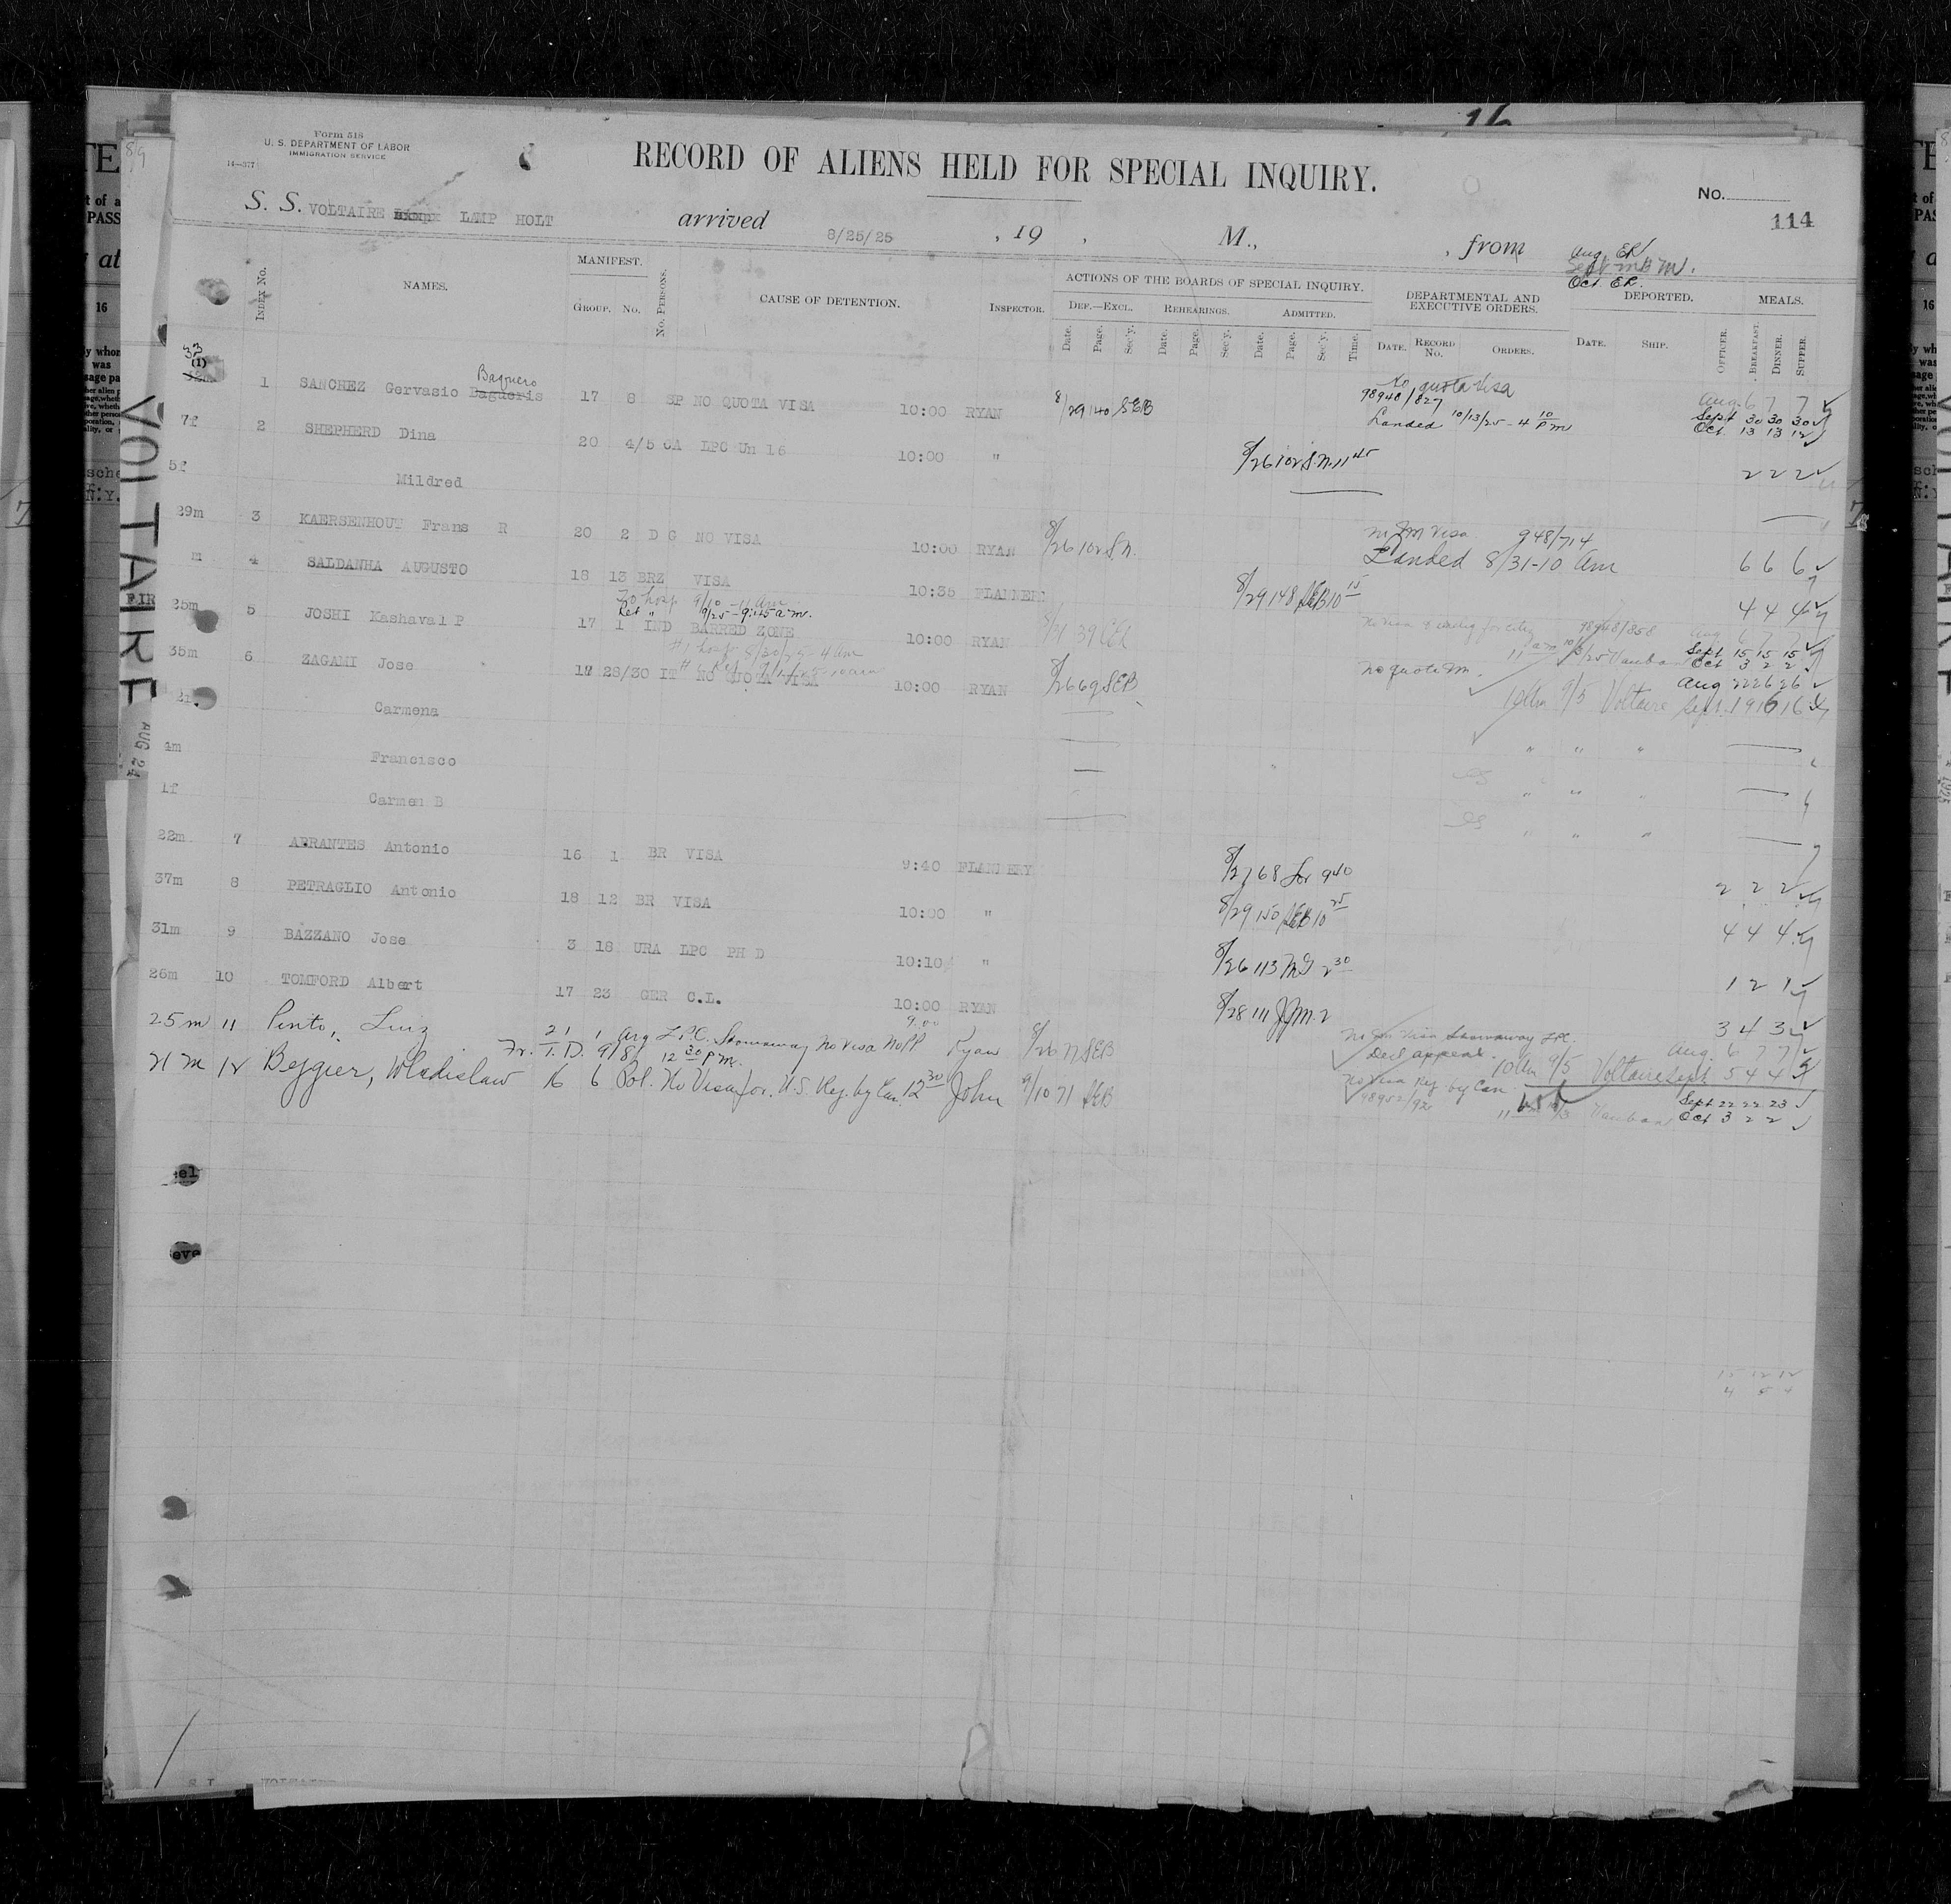 Form 518
U. S. DEPARTMENT OF LABOR
IMMIGRATION SERVICE
14—377
RECORD OF ALIENS HELD FOR SPECIAL INQUIRY.
No.
114
S. S. VOLTAIRE LAMP HOLT arrived 8/25/25 , 19 , M., , from
Aug. ER
Sept
Oct. ER.
INDEX No. NAMES. MANIFEST. GROUP. No. No. PERSONS. CAUSE OF DETENTION. INSPECTOR. ACTIONS OF THE BOARDS OF SPECIAL INQUIRY. DEPARTMENTAL AND EXECUTIVE ORDERS. DEPORTED. MEALS.
DEF.—EXCL. REHEARINGS. ADMITTED.
Date. Page. Sec'y. Date. Page. Sec'y. Date. Page. Sec'y. Time. DATE. RECORD No. ORDERS. DATE. SHIP. OFFICER. BREAKFAST. DINNER. SUPPER.
33 (1) 1 SANCHEZ Gervasio Bagueris Baquero 17 8 SP NO QUOTA VISA 10:00 RYAN 8/29 140 SEB quota Visa 98948/827 Aug. 6 7 7
Landed 10/13/25 - 4 10 Pm Sept 30 30 30
Oct. 13 13 12
7f 2 SHEPHERD Dina 20 4/5 CA LPC Un 16 10:00 " 8/26 102 S.N. 11 45 2 2 2
5f Mildred
29m 3 KAERSENHOUT Frans R 20 2 D G NO VISA 10:00 RYAN 8/26 102 S.N. Visa 948/714
Landed 8/31-10 Am 6 6 6
m 4 SALDANHA AUGUSTO 18 13 BRZ VISA 10:35 FLANNERY 8/29 148 SEB 10 15 4 4 4
To hosp 9/10 - 11 am
Ret " 9/25 - 9:45 a.m.
25m 5 JOSHI Kashaval P 17 1 IND BARRED ZONE 10:00 RYAN 8/31 39 98948/858 Aug 6 7 7
Vauban Sept 15 15 15
Oct 3 2 2
#1 hosp 8/30/25 - 4 am
35m 6 ZAGAMI Jose 18 28/30 IT NO QUOTA VISA 10:00 RYAN 8/26 69 SEB No quota Aug 22 26 26
10 Am 9/5 Voltaire Sept. 19 16 16
21f Carmena " " "
4m Francisco " " "
1f Carmen B " " "
22m 7 ABRANTES Antonio 16 1 BR VISA 9:40 FLANNERY 8/27 68 940 2 2 2
37m 8 PETRAGLIO Antonio 18 12 BR VISA 10:00 " 8/29 150 SEB 10 25 4 4 4
31m 9 BAZZANO Jose 3 18 URA LPC PH D 10:10 " 8/26 113 2 30 1 2 1
26m 10 TOMFORD Albert 17 23 GER C.L. 10:00 RYAN 8/28 111 JJM. 2 3 4 3
25m 11 Pinto, Luiz 21 1 Arg L.P.C. Stowaway No Visa No PP 9.00 Ryan 8/26 71 SEB Visa Stowaway LPC. Aug. 6 7 7
Fr. T. D. 9/8 12 30 P.M. Decl appeal. 10 Am 9/5 Voltaire Sept. 5 4 4
21 m 12 Bejgier, Wladislaw 16 6 Pol. No Visa for. U.S. Rej. by Can. 12 30 John 9/10 71 SEB No Visa Rej. by Can. Sept 22 22 23
98952/92 Vauban Oct 3 2 2
VOLTAIRE
AUG 24